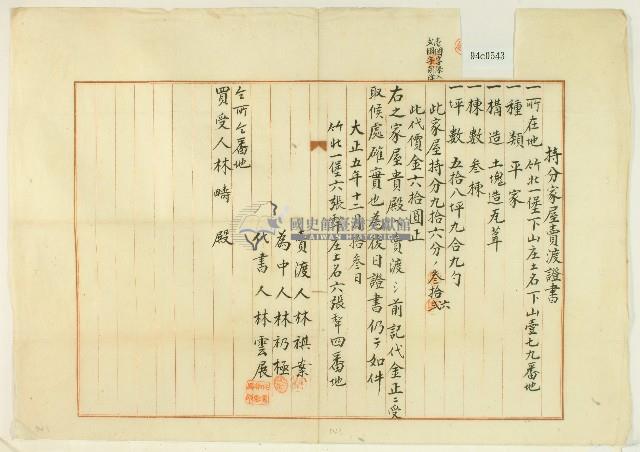 持分家屋賣渡證書
一所在地 竹北一堡下山庄土名下山壹七九番地
一種類 平家
一構造 土塊造瓦葺
一棟數 叁棟
一坪數 五拾八坪九合九勺
此家屋持分九拾六分ノ叁拾六
此代價金六拾圓正
右之家屋貴殿ニ賣渡シ前記代金正ニ受
取候處確實也為後日證書仍テ如件
大正五年十二月拾叁日
竹北一堡六張犂庄土名六張犂四番地
賣渡人 林祺業
為中人 林礽極
代書人 林雲展
仝所仝番地
買受人 林疇 殿
94c0543
國史館臺灣文獻館
TAIWAN HISTORICA